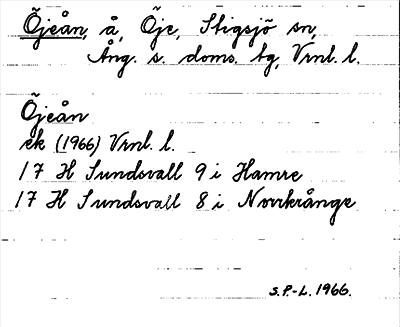 Öjeån, å, Öje, Stigsjö sn,
Ång. s. doms. tg, Vrnl. l.
Öjeån
ek (1966) Vrnl. l.
17 H Sundsvall 9 i Hamre
17 H Sundsvall 8 i Norrkrånge
S.P.-L. 1966.